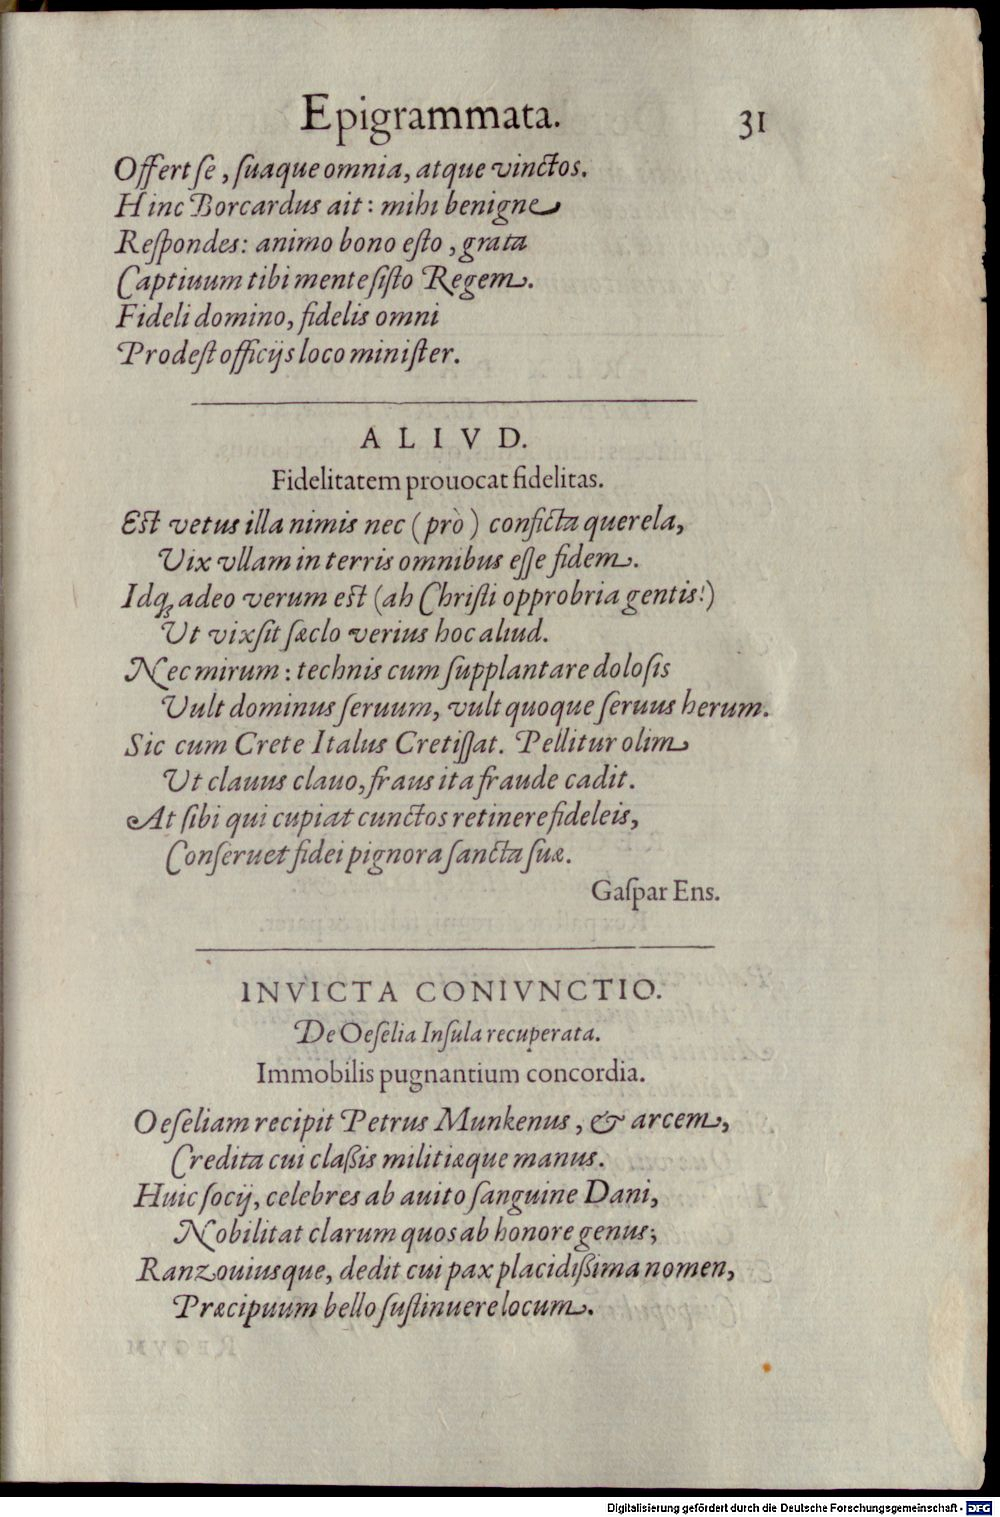 Epigrammata. 31
Offert ſe, ſuaque omnia, atque vinctos.
Hinc Borcardus ait: mihi benigne
Reſpondes: animo bono eſto, grata
Captiuum tibi mente ſiſto Regem.
Fideli domino, fidelis omni
Prodeſt officijs loco miniſter.
ALIVD.
Fidelitatem prouocat fidelitas.
Eſt vetus illa nimis nec (prò) conficta querela,
Vix vllam in terris omnibus eſſe fidem.
Idq́ꝫ adeo verum eſt (ah Chriſti opprobria gentis!)
Ut vix ſit ſæclo verius hoc aliud.
Nec mirum: technis cum ſupplantare doloſis
Vult dominus ſeruum, vult quoque ſeruus herum.
Sic cum Crete Italus Cretiſſat. Pellitur olim
Ut clauus clauo, fraus ita fraude cadit.
At ſibi qui cupiat cunctos retinere fideleis,
Conſeruet fidei pignora ſancta ſuæ.
Gaſpar Ens.
INVICTA CONIVNCTIO.
De Oeſelia Inſula recuperata.
Immobilis pugnantium concordia.
Oeſeliam recipit Petrus Munkenus, & arcem,
Credita cui claßis militiæque manus.
Huic ſocij, celebres ab auito ſanguine Dani,
Nobilitat clarum quos ab honore genus;
Ranzouiusque, dedit cui pax placidißima nomen,
Præcipuum bello ſuſtinuere locum.
Digitalisierung gefördert durch die Deutsche Forschungsgemeinschaft - DFG